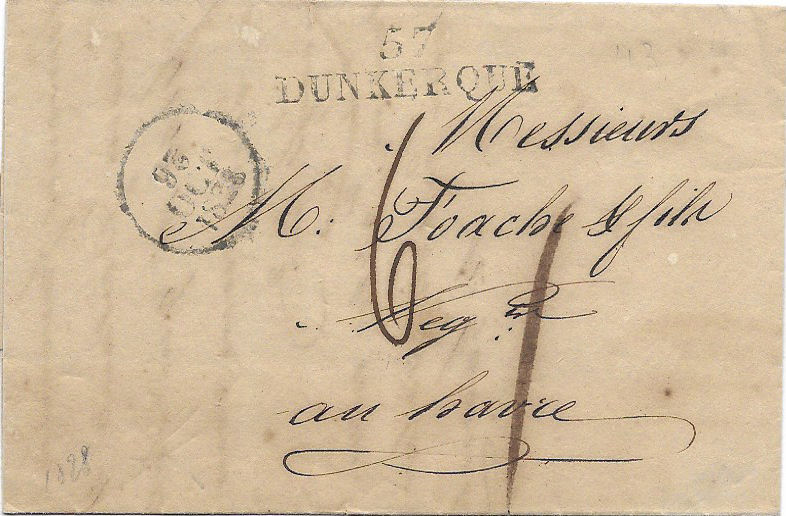 57
DUNKERQUE
Messieurs
M: Foache & fils
Negts
au havre
6
1828